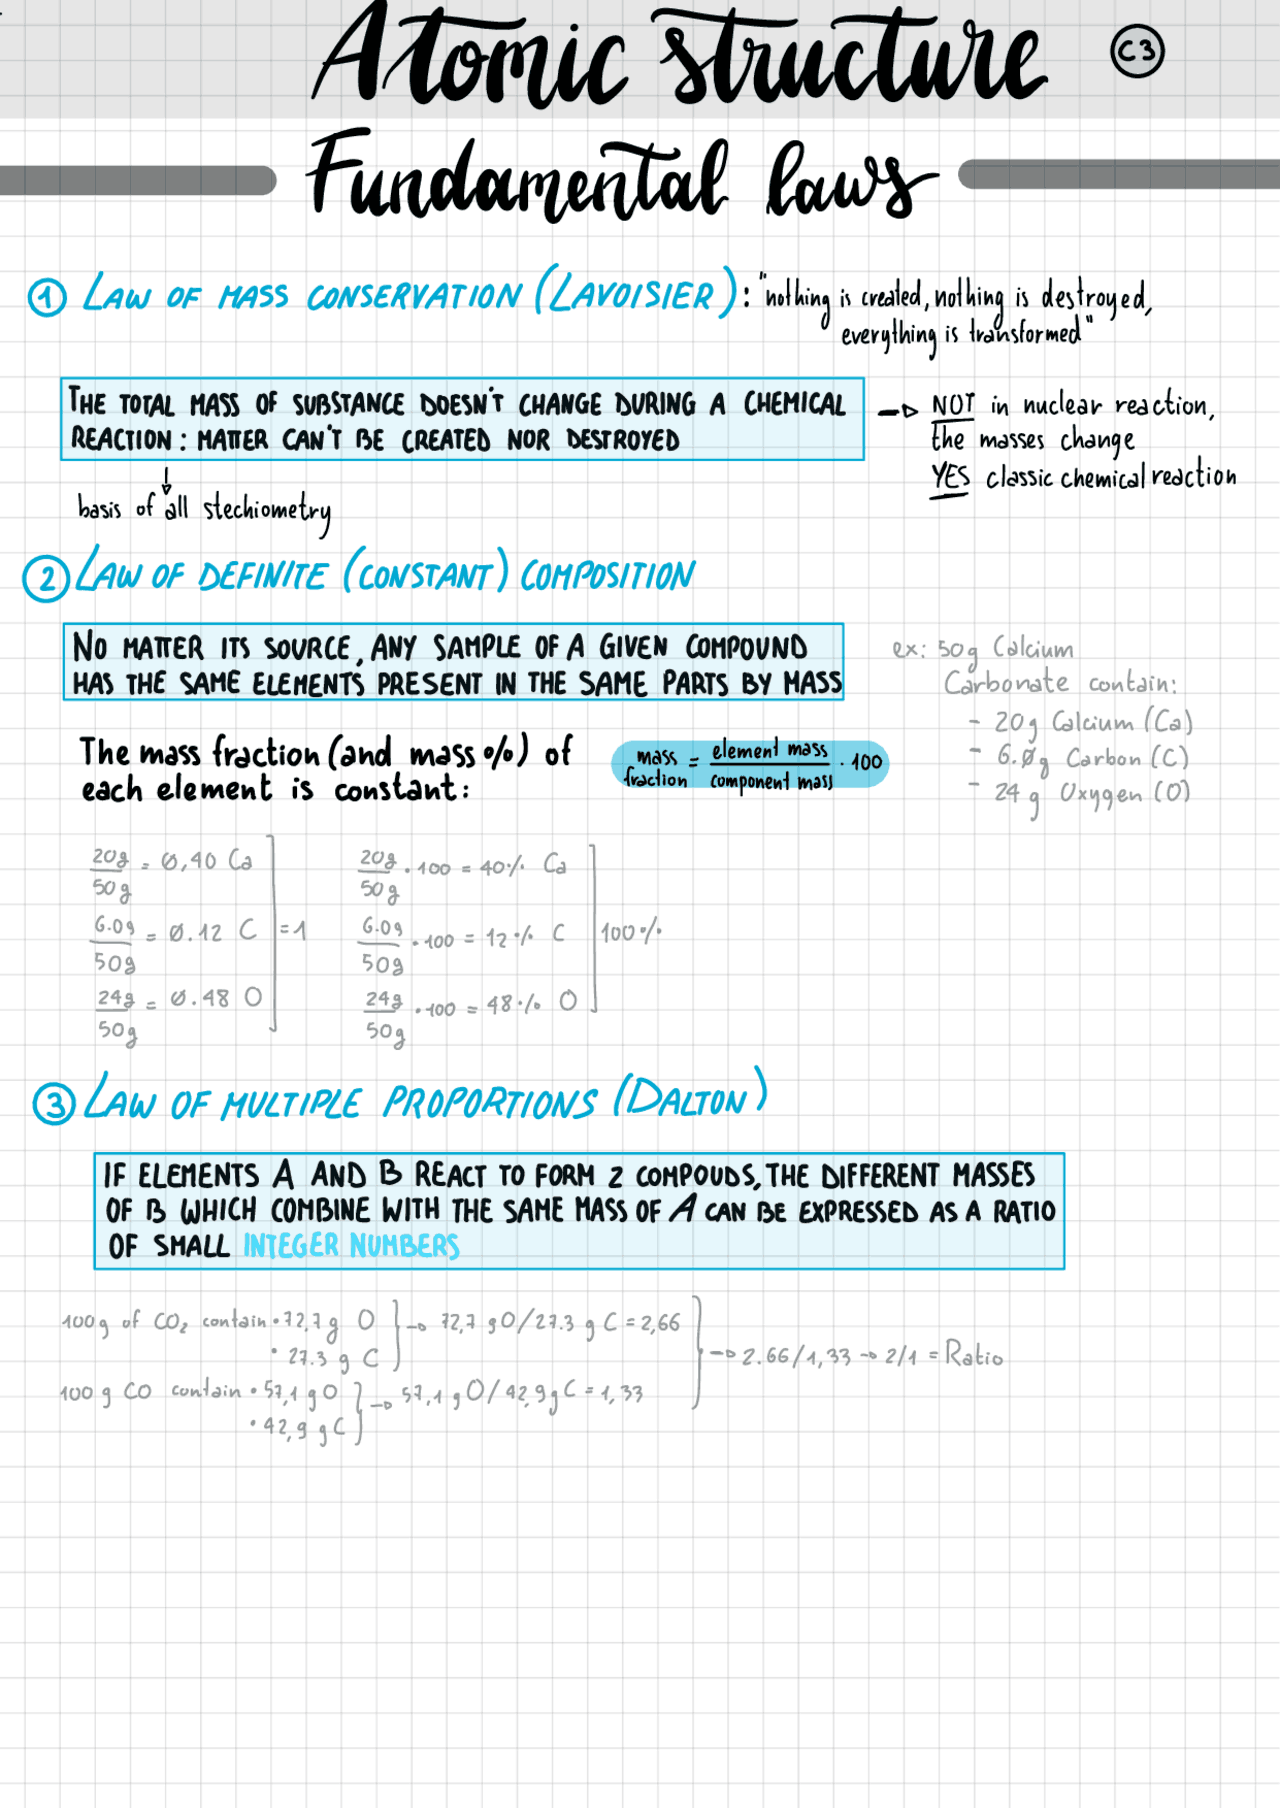 Atomic structure C3
Fundamental laws
1 LAW OF MASS CONSERVATION (LAVOISIER): "nothing is created, nothing is destroyed,
everything is transformed"
THE TOTAL MASS OF SUBSTANCE DOESN'T CHANGE DURING A CHEMICAL
REACTION: MATTER CAN'T BE CREATED NOR DESTROYED
→ NOT in nuclear reaction,
the masses change
YES classic chemical reaction
↓
basis of all stechiometry
2 LAW OF DEFINITE (CONSTANT) COMPOSITION
NO MATTER ITS SOURCE, ANY SAMPLE OF A GIVEN COMPOUND
HAS THE SAME ELEMENTS PRESENT IN THE SAME PARTS BY MASS
ex: 50g Calcium
Carbonate contain:
- 20g Calcium (Ca)
- 6.0g Carbon (C)
- 24 g Oxygen (O)
The mass fraction (and mass %) of
each element is constant:
mass fraction = element mass / component mass · 100
20g / 50g = 0,40 Ca
6.0g / 50g = 0.12 C
24g / 50g = 0.48 O
= 1
20g / 50g · 100 = 40% Ca
6.0g / 50g · 100 = 12% C
24g / 50g · 100 = 48% O
100%
3 LAW OF MULTIPLE PROPORTIONS (DALTON)
IF ELEMENTS A AND B REACT TO FORM 2 COMPOUDS, THE DIFFERENT MASSES
OF B WHICH COMBINE WITH THE SAME MASS OF A CAN BE EXPRESSED AS A RATIO
OF SMALL INTEGER NUMBERS
100g of CO₂ contain • 72,7 g O } → 72,7 gO/27.3 g C = 2,66
• 27.3 g C
→ 2.66/1,33 → 2/1 = Ratio
100 g CO contain • 57,1 g O } → 57,1 g O/42,9 g C = 1,33
• 42,9 g C